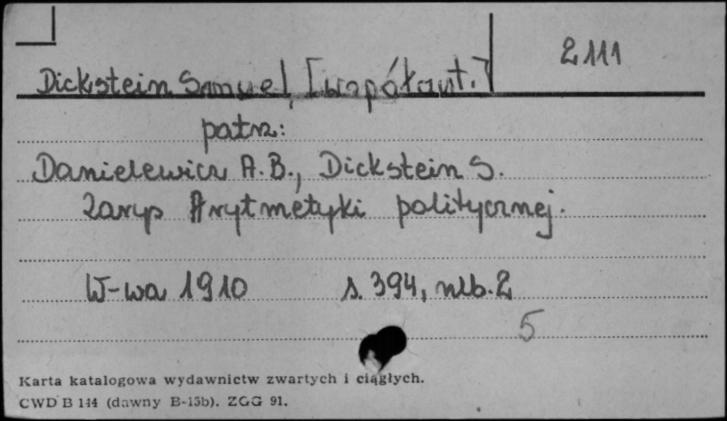 2111
Dickstein Samuel, [współaut.]
patrz:
Danielewicz A.B., Dickstein S.
Zarys Arytmetyki politycznej.
W-wa 1910 s. 394, nlb. 2
5
Karta katalogowa wydawnictw zwartych i ciągłych.
CWD B 144 (dawny B-15b). ZGG 91.